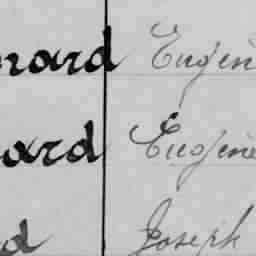 nard Eugèn
ard Eugène
d Joseph